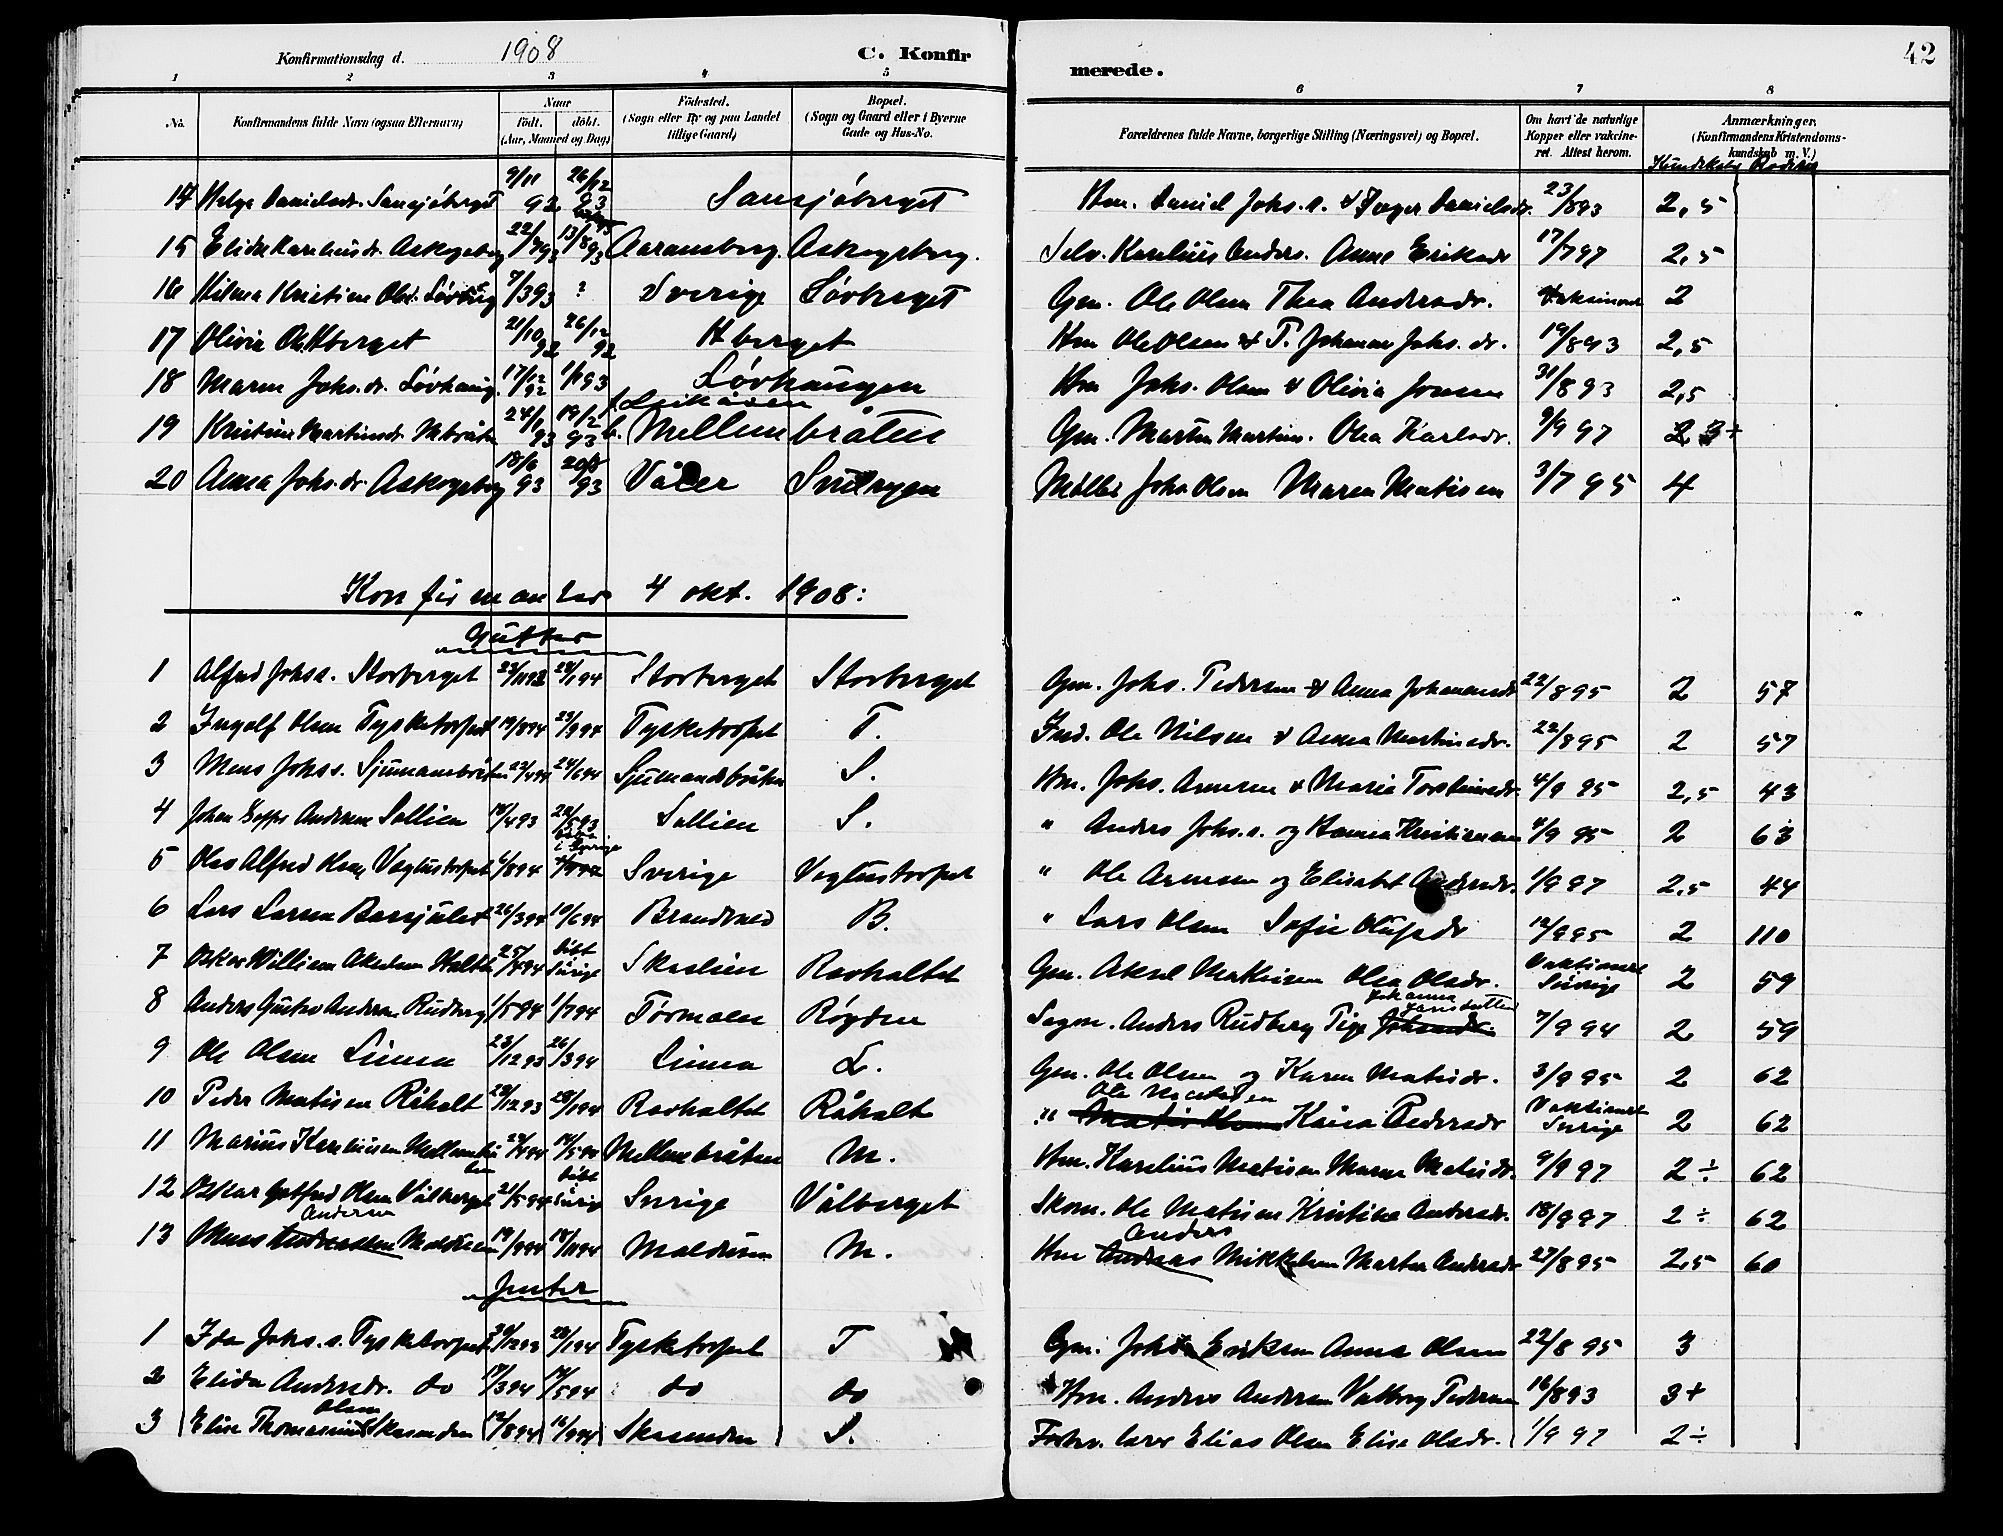 42
Konfirmationsdag d. 1908 C. Konfirmerede.
1 2 3 4 5 6 7 8
No. Konfirmandens fulde Navn (ogsaa Efternavn) Naar født. døbt. (Aar, Maaned og Dag) Födested. (Sogn eller By og paa Landet tillige Gaard) Bopæl. (Sogn og Gaard eller i Byerne Gade og Hus-No. Forældrenes fulde Navne, borgerlige Stilling (Næringsvei) og Bopæl. Om havt de naturlige Kopper eller vaksineret. Attest herom. Anmærkninger. (Konfirmandens Kristendomskundskab m. V.)
Kundskab
14 Helga Danielsdr. Sansjöberget 9/11 92 26/12 93 Sansjöberget Hm. Daniel Johs.s. & Inger Danielsdr. 23/893 2,5
15 Elida Kareliusdr. Askogsberg 22/793 13/893 Aaransberg. Askogsberg. Selv. Karelius Anders. Anne Eriksdr 17/797 2,5
16 Hilma Kristine Olsd. Lövberg 7/393 ? Sverige Lövberget Gm. Ole Olsen Thea Andersdr. Vaksineret 2
17 Olivia Ols. Hberget 21/10 92 26/12 92 Hberget Hm Ole Olsen & P. Johanne Johs. dr. 19/893 2,5
18 Maren Johs. dr. Lövhaug. 17/12 92 1/193 Lövhaugen Hm Johs. Olsen & Olivia Jonsen 31/893 2,5
19 Kristine Martinsdr. Mbråten 24/1 93 19/2 93 Mellembråten Gm. Martin Martins. Olea Karlsdr. 9/9 97 2 3÷
20 Anna Johs. dr. Askogsberg 18/6 93 20/8 93 Våler Möller Johs Olsen Maren Matisen 3/7 95 4
Konfirmander 4 okt. 1908:
Gutter
1 Alfred Johs s. Storberget 23/1192 28/194 Storberget Storberget Gm. Johs. Pedersen & Anna Johannesdr 22/895 2 57
2 Ingolf Olsen Tysketorpet 19/894 23/994 Tysketorpet T. Ind. Ole Nilsen & Anna Martinsdr. 22/895 2 57
3 Mons Johs s. Sjumansbråten 23/494 24/694 Sjumandsbråten S. Hm. Johs. Arnesen & Maria Torstensdr. 4/9 95 2,5 43
4 Johan Andersen Sollien 18/493 28/593 Sollien S. " Anders Johs.s. og Hanna Kristiansen 4/9 95 2 63
5 Olav Alfred Olsen Vaglustorpet 6/894 i Sverige Sverige Vaglustorpet " Ole Arnesen og Elisabet Andersdr. 1/9 97 2,5 44
6 Lars Larsen 26/394 10/694 Brandvold B. " Lars Olsen Sofie Olufsdr 12/995 2 110
7 Oskar William Akselsen 25/494 döbt Sverige Skaslien Ravholtet Gm. Aksel Mathisen Olea Olsdr. Vaktineret Sverige 2 59
8 Anders Gustav Andersen Rudberg 1/594 1/794 Törmoen Røgden Sagm. Anders Rudberg Pige Johanna Jansdatter 7/9 94 2 59
9 Ole Olsen Linna 23/1293 26/394 Linna L. Gm. Ole Olsen og Karen Matisdr. 3/995 2 62
10 Peder Matisen Råholt 29/1293 28/194 Ravholtet Råholt " Ole Matisen Kaisa Pedersdr Vaktineret Sverige 2 62
11 Marius Kareliussen Mellembråten 24/494 14/594 Mellembråten M. Hm. Karelius Matisen Maren Matisdr. 9/9 97 2÷ 62
12 Oskar Gotfred Olsen Vålberget 21/594 döbt Sverige Sverige Vålberget Skom. Ole Matisen Kristine Andersdr. 18/997 2÷ 62
13 Mons Andersen 19/994 18/1194 M. Hm Anders Mikkelsen Marten Andersdr 27/895 2,5 60
Jenter
1 Ida Johs. s. Tysketorpet 30/1293 28/194 Tysketorpet T Gm. Johs Eriksen Anna Olsen 22/8 95 3
2 Elida Andersdr. do 17/394 14/594 do do Hm. Anders Andersen Valborg Pedersen 16/893 3+
3 Elise Thomasine Olsen Skasenden 12/894 16/994 Skasenden S. Elias Olsen Elise Olsdr. 1/9 97 2÷